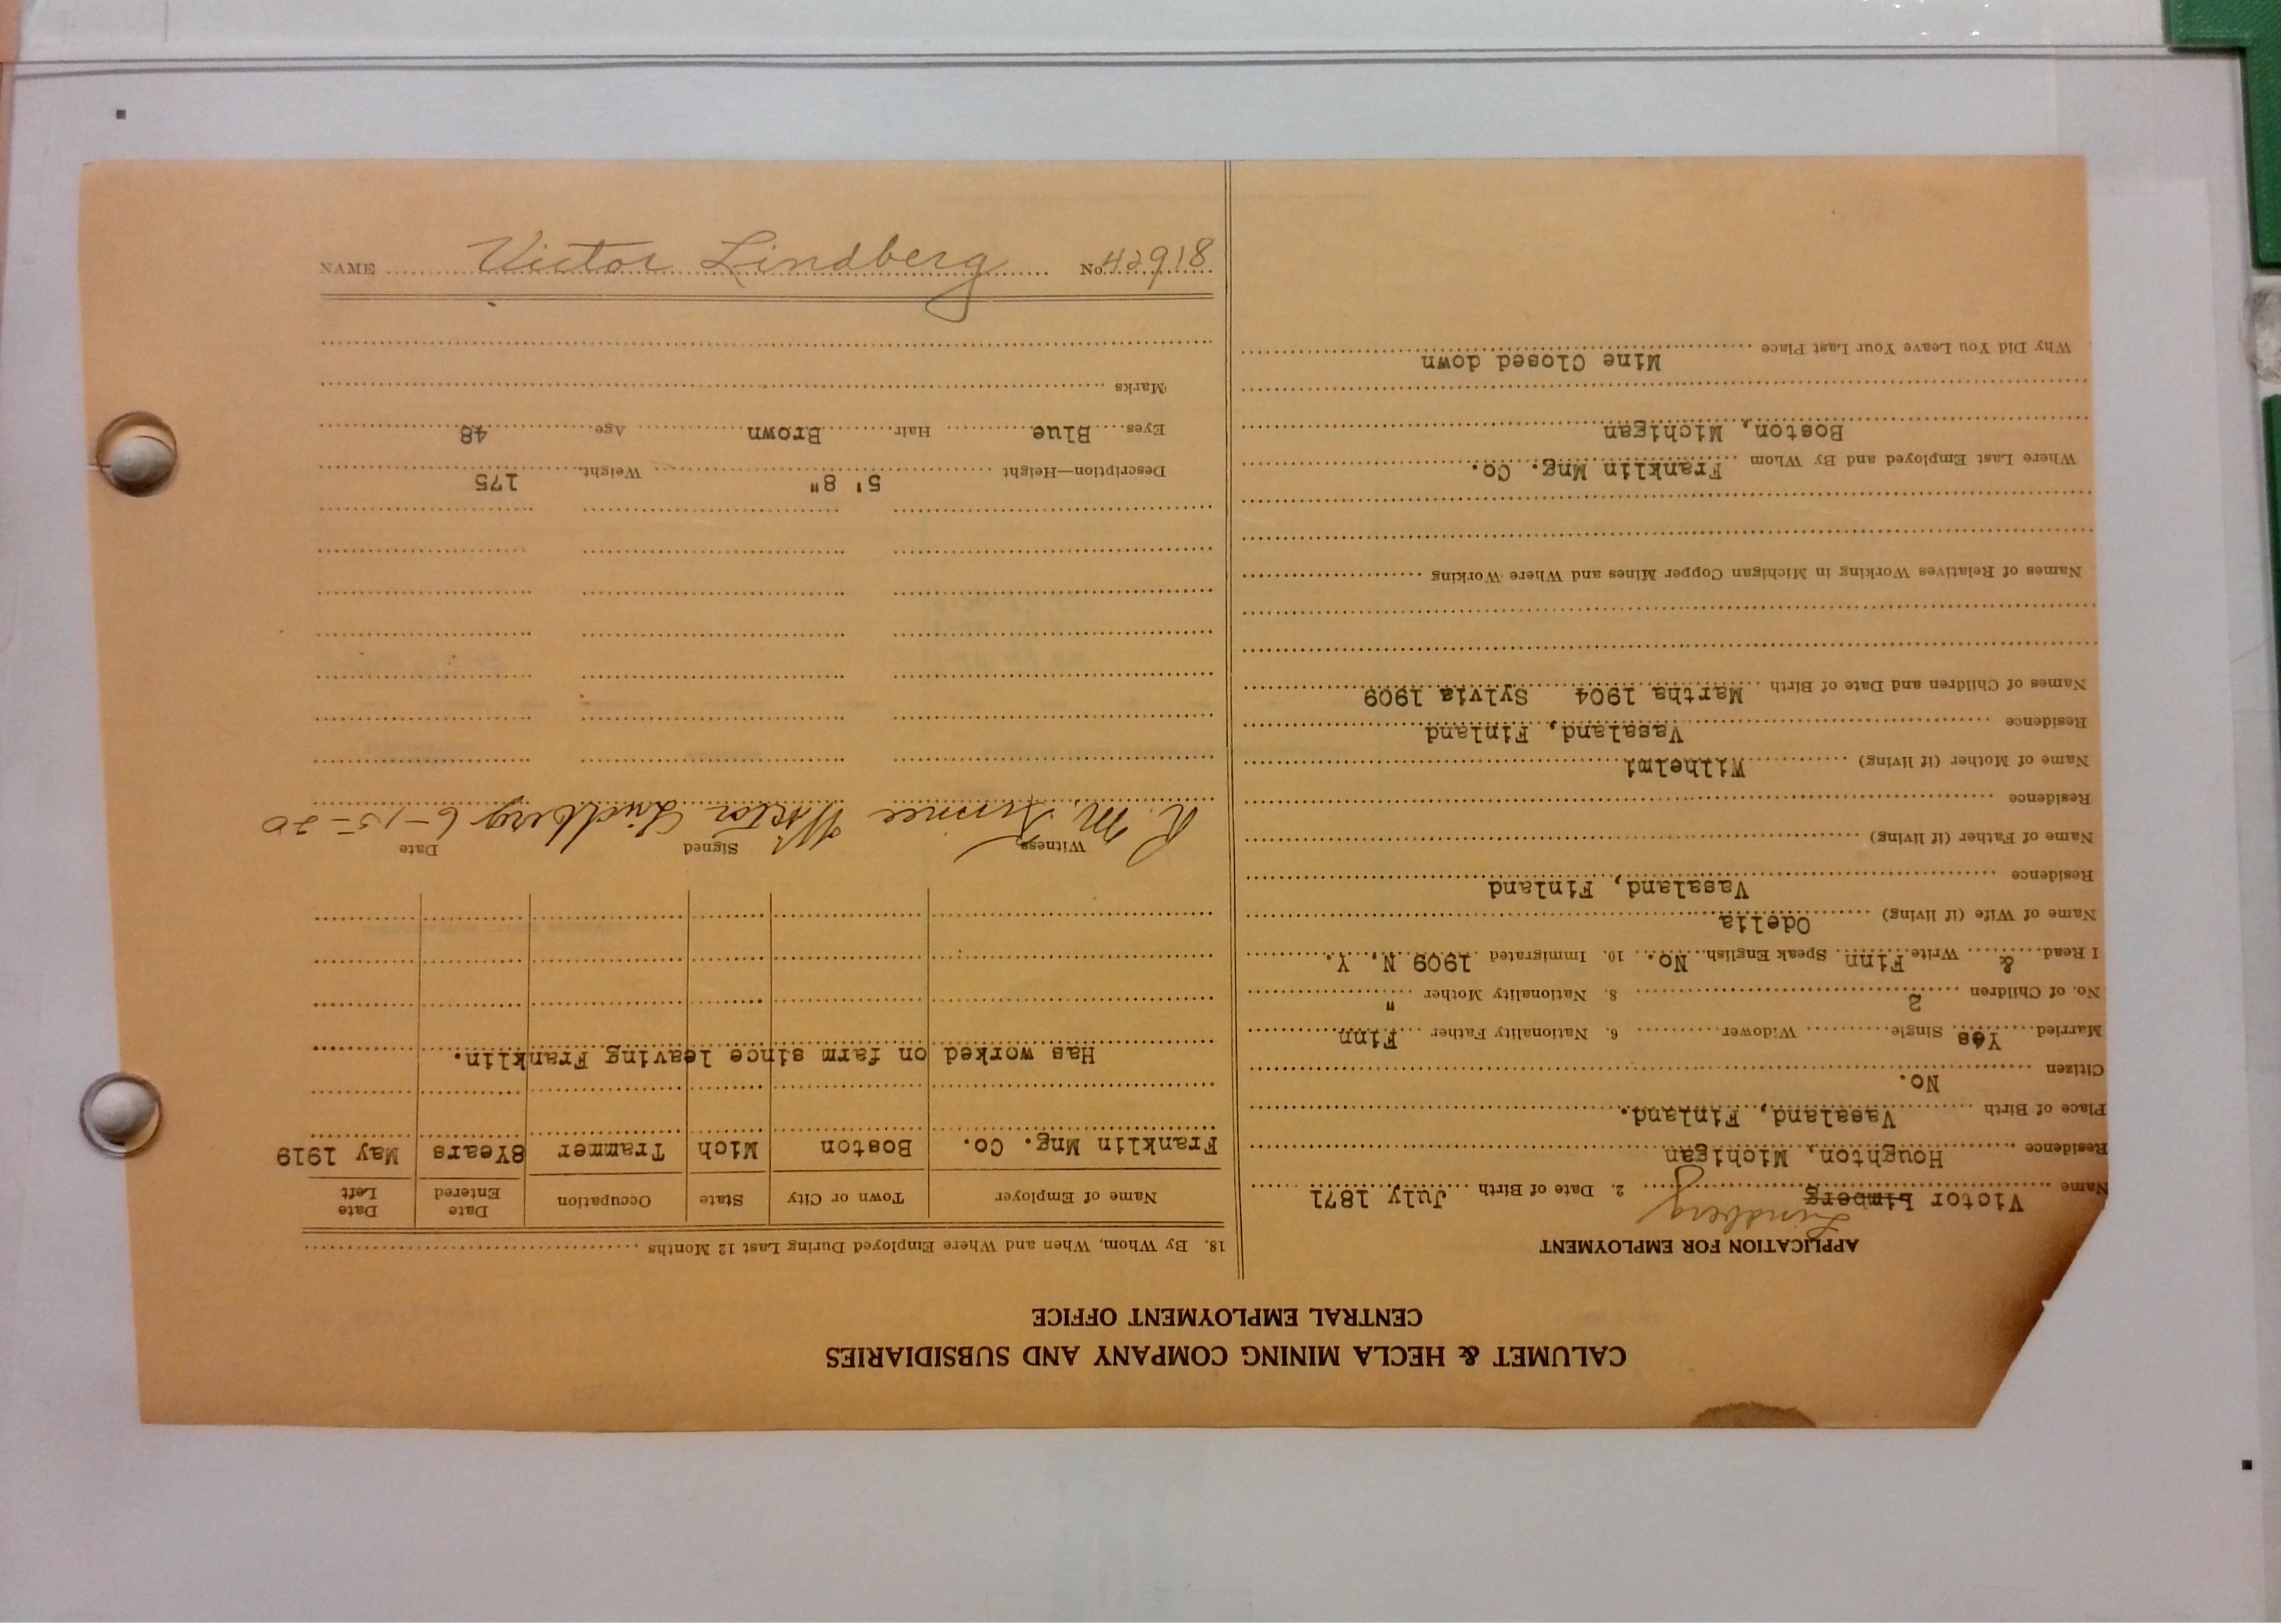 CALUMET & HECLA MINING COMPANY AND SUBSIDIARIES
CENTRAL EMPLOYMENT OFFICE
APPLICATION FOR EMPLOYMENT
Lindberg
Name Victor Limberg 2. Date of Birth July 1871
Residence Houghton, Michigan
Place of Birth Vasaland, Finland.
Citizen No.
Married Yes Single Widower 6. Nationality Father Finn
No. of Children 2 8. Nationality Mother "
I Read & Write Finn Speak English No. 10. Immigrated 1909 N. Y.
Name of Wife (if living) Odelia
Residence Vasaland, Finland
Name of Father (if living)
Residence
Name of Mother (if living) Wilhelmi
Residence Vasaland, Finland
Names of Children and Date of Birth Martha 1904 Sylvia 1909
Names of Relatives Working in Michigan Copper Mines and Where Working
Where Last Employed and By Whom Franklin Mng. Co.
Boston, Michigan
Why Did You Leave Your Last Place Mine Closed down
18. By Whom, When and Where Employed During Last 12 Months
Name of Employer Town or City State Occupation Date Entered Date Left
Franklin Mng. Co. Boston Mich Trammer 8Years May 1919
Has worked on farm since leaving Franklin.
Witness Signed Date
R. M. Victor Lindberg 6-15-20
Description—Height 5' 8" Weight 175
Eyes Blue Hair Brown Age 48
Marks
NAME Victor Lindberg No. 42918